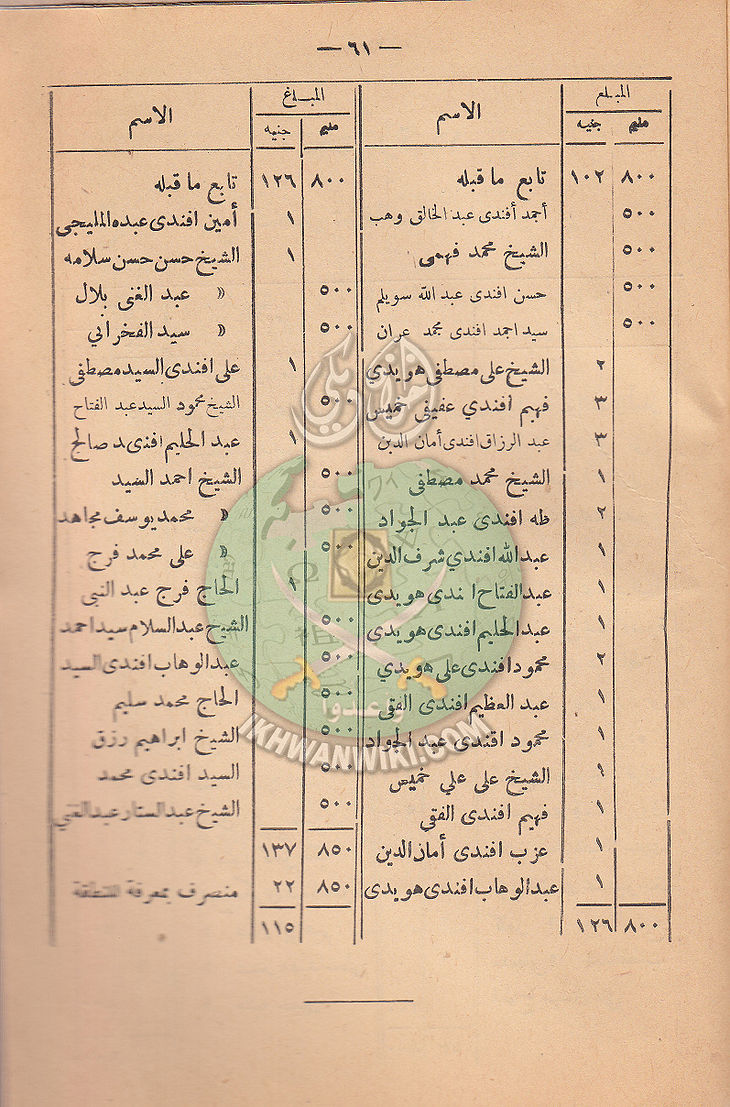 — ٦١ —
المبلغ الاسم
مليم جنيه
٨٠٠ ١٠٢ تابع ما قبله
٥٠٠ أحمد أفندى عبد الخالق وهب
٥٠٠ الشيخ محمد فهمى
٥٠٠ حسن افندى عبد الله سويلم
٥٠٠ سيد احمد افندى محمد عران
٢ الشيخ على مصطفى هويدي
٣ فهيم افندي عفيفى خميس
٣ عبد الرزاق افندى أمان الدين
١ الشيخ محمد مصطفى
٢ طه افندى عبد الجواد
١ عبد الله افندي شرف الدين
١ عبد الفتاح ا ندى هويدى
١ عبد الحليم افندى هويدى
٢ محمود افندى على هويدي
١ عبد العظيم افندى الفقى
١ محمود افندى عبد الجواد
١ الشيخ على علي خميس
١ فهيم افندى الفقي
١ عزب افندى أمان الدين
١ عبد الوهاب افندى هويدى
٨٠٠ ١٢٦
المبلغ الاسم
مليم جنيه
٨٠٠ ١٢٦ تابع ما قبله
١ أمين افندى عبده المليجى
١ الشيخ حسن حسن سلامه
٥٠٠ » عبد الغنى بلال
٥٠٠ » سيد الفخراني
١ على افندى السيد مصطفى
٥٠٠ الشيخ محمود السيد عبد الفتاح
١ عبد الحليم افندى د صالح
٥٠٠ الشيخ احمد السيد
٥٠٠ » محمد يوسف مجاهد
٥٠٠ » على محمد فرج
١ الحاج فرج عبد النبى
٥٠٠ الشيخ عبد السلام سيد احمد
٥٠٠ عبد الوهاب افندى السيد
٥٠٠ الحاج محمد سليم
٥٠٠ الشيخ ابراهيم رزق
٥٠٠ السيد افندى محمد
٥٠٠ الشيخ عبد الستار عبد الغني
٨٥٠ ١٣٧
٨٥٠ ٢٢ منصرف بمعرفة المنطقة
١١٥
وأعدوا
IKHWANWIKI.COM